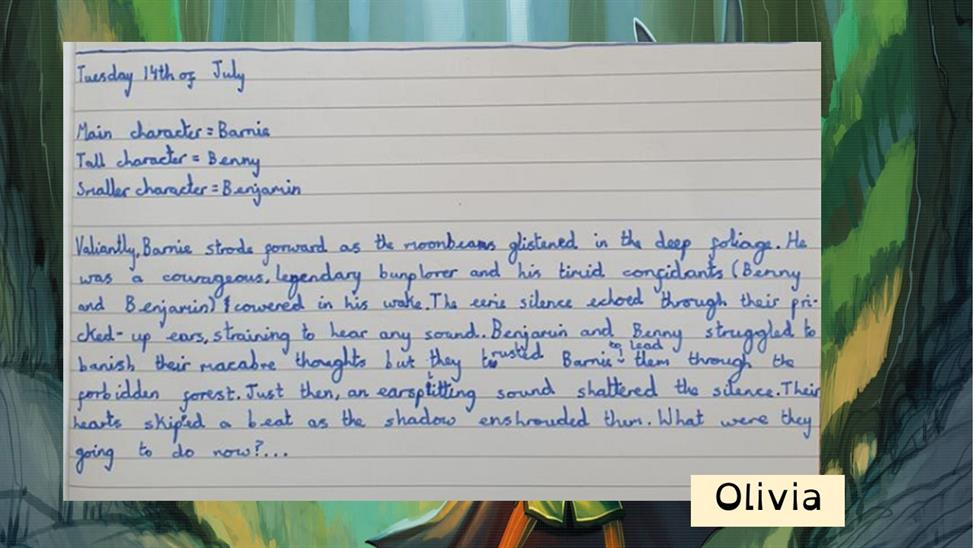 Tuesday 14th of July
Main character = Barnie
Tall character = Benny
Smaller character = Benjamin
Valiantly, Barnie strode forward as the moonbeams glistened in the deep foliage. He
was a courageous, legendary bunplorer and his timid confidants (Benny
and Benjamin) cowered in his wake. The eerie silence echoed through their pri-
cked-up ears, straining to hear any sound.. Benjamin and Benny struggled to
banish their macabre thoughts but they trusted Barnie to lead them through the
forbidden forest. Just then, an earsplitting sound shattered the silence. Their
hearts skipped a beat as the shadow enshrouded them. What were they
going to do now?...
Olivia